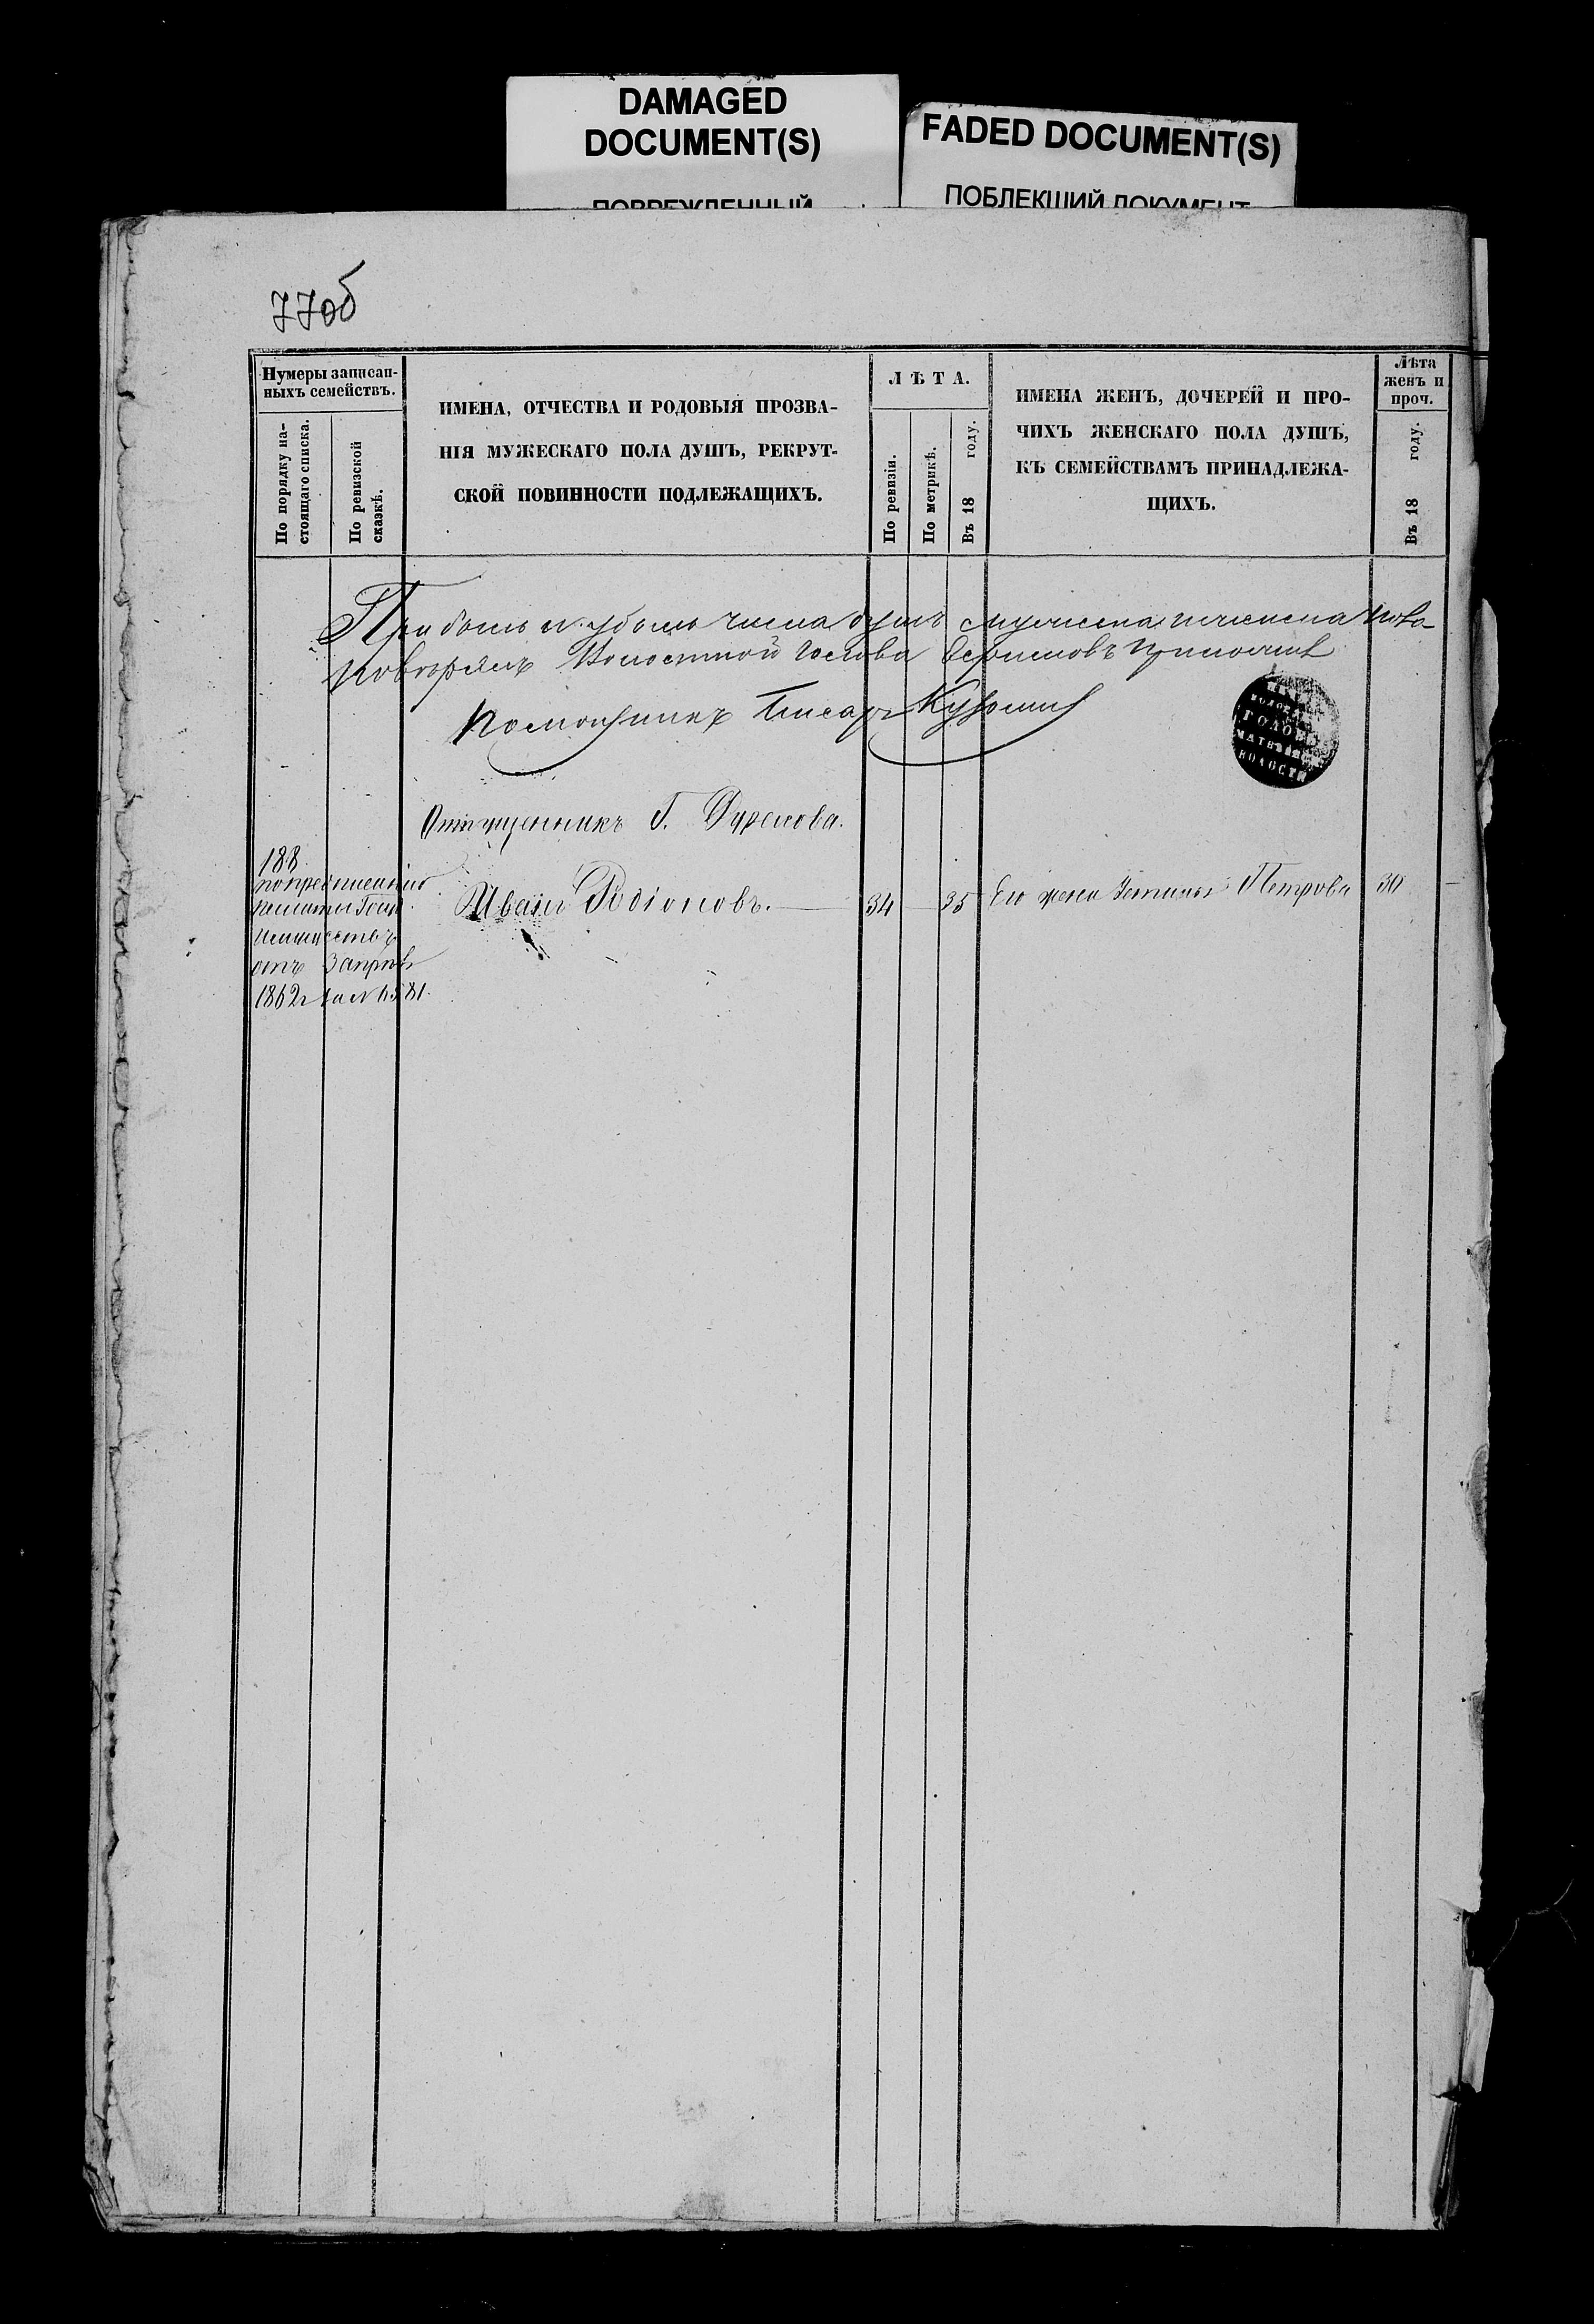 DAMAGED
DOCUMENT(S)
ПОВРЕЖДЕННЫЙ
FADED DOCUMENT(S)
ПОБЛЕКШИЙ ДОКУМЕНТ
77об
Нумеры записан-
ныхъ семействъ.
По порядку на-
стоящаго списка.
По ревизской
сказкѣ.
ИМЕНА, ОТЧЕСТВА И РОДОВЫЯ ПРОЗВА-
НІЯ МУЖЕСКАГО ПОЛА ДУШЪ, РЕКРУТ-
СКОЙ ПОВИННОСТИ ПОДЛЕЖАЩИХЪ.
ЛѢТА.
По ревизіи.
По метрикѣ.
Въ 18 году.
ИМЕНА ЖЕНЪ, ДОЧЕРЕЙ И ПРО-
ЧИХЪ ЖЕНСКАГО ПОЛА ДУШЪ,
КЪ СЕМЕЙСТВАМЪ ПРИНАДЛЕЖА-
ЩИХЪ.
Лѣта
женъ и
проч.
Въ 18 году.
Прибыль и убыль числа душъ мужеска и женска пола
повѣрялъ Волостной Голова
Помощникъ Писаря
ГОЛОВЫ
ВОЛОСТИ
Отпущенникъ Г.
188
по предписанію
палаты Госуд.
Имуществъ
отъ 3 апрѣля
1862 г за № 4581.
Иванъ Родіоновъ. 34 35 Его жена Устинья Петрова 30